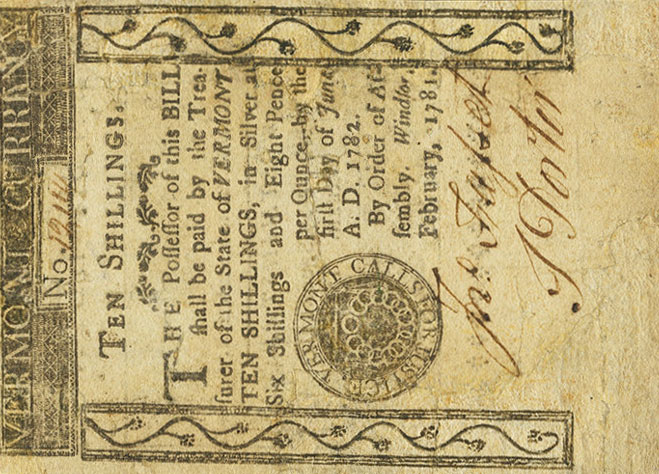 VERMONT CURRENCY.
No.
TEN SHILLINGS.
THE Possessor of this BILL
shall be paid by the Trea-
surer of the State of VERMONT
TEN SHILLINGS, in Silver at
Six Shillings and Eight Pence
per Ounce, by the
first Day of June
A. D. 1782.
By Order of As-
sembly. Windsor,
February, 1781.
VERMONT CALLS FOR JUSTICE.
T Porter